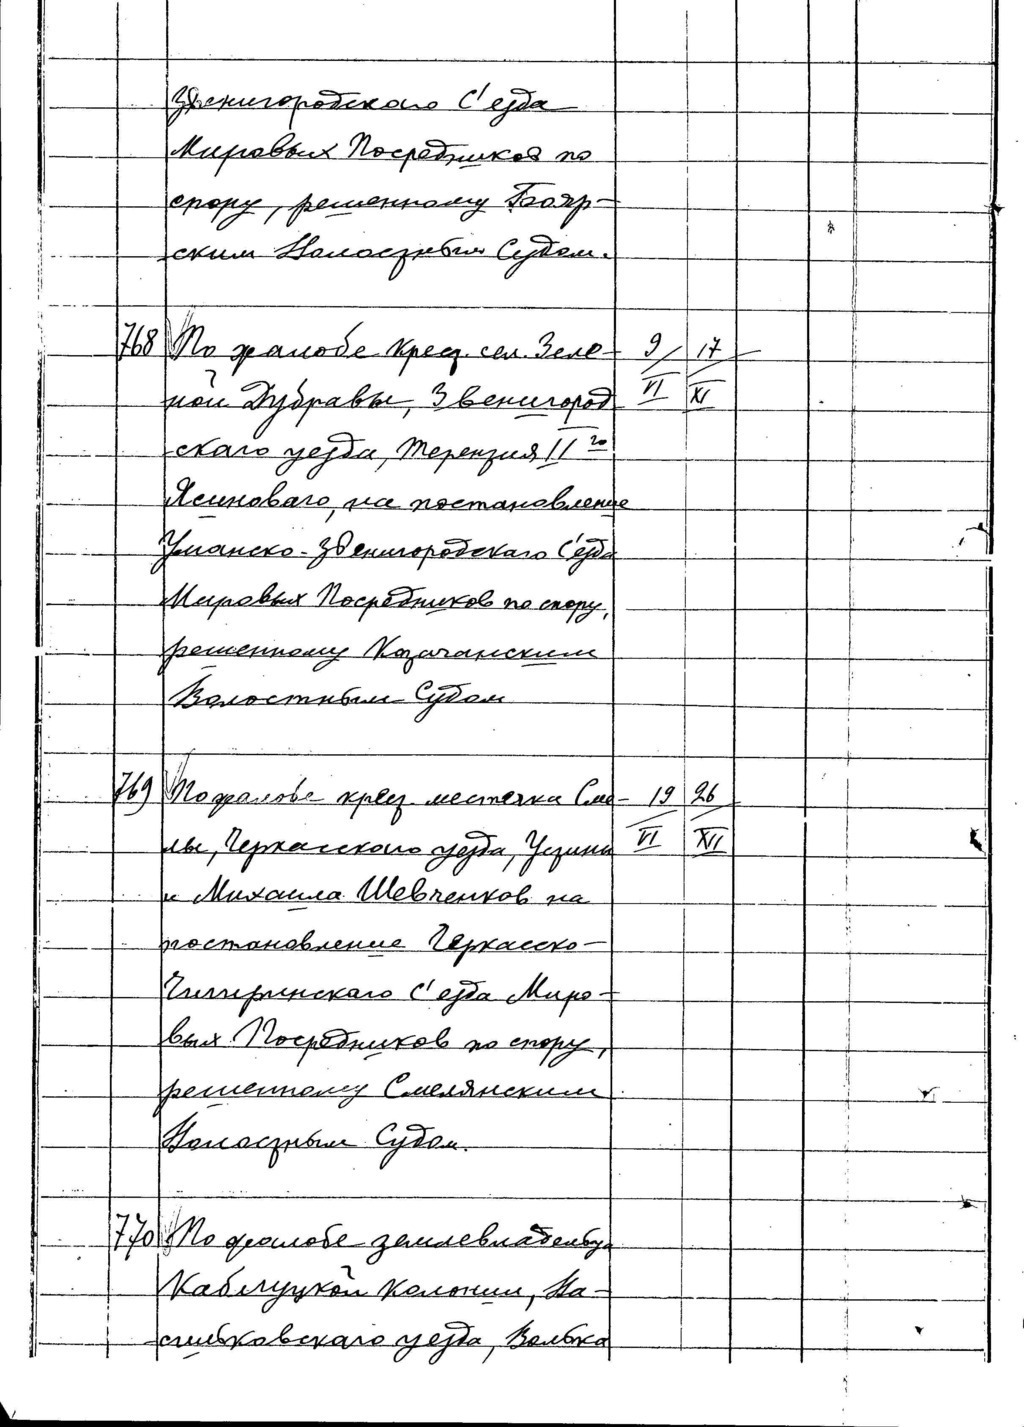 Звенигородского С'езда
Мировых Посредников по
спору, решенному Бояр-
ским Волостным Судом.
768 По жалобе крест. сел. Зеле- 9/VI 17/XI
ной Дубравы, Звенигород
скаго уезда, Терентия II го
Ясиноваго, на постановление
Уманско-Звенигородскаго С'езда
Мировых Посредников по спору,
решенному Казачанским
Волостным Судом
769 По жалобе крест. местечка Сме- 19/VI 26/XII
лы, Черкасского уезда, Устина
и Михаила Шевченков на
постановление Черкасско-
Чигиринскаго С'езда Миро-
вых Посредников по спору,
решенному Смелянским
Волостным Судом.
770 По жалобе землевладельца
Колонии, Ва-
сильковскаго уезда, Волька